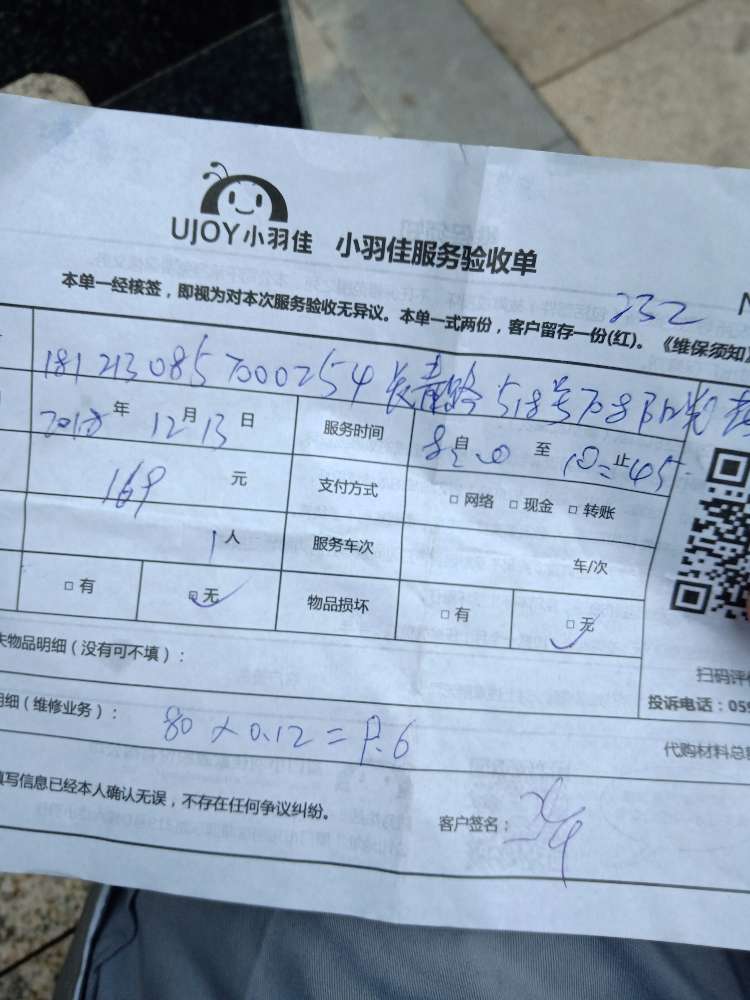 UJOY小羽佳 小羽佳服务验收单
本单一经核签，即视为对本次服务验收无异议。本单一式两份，客户留存一份(红)。《维保须知》
232
N
1812130857000254 长青路518号708
2018年12月13日 服务时间 8:20自 至 10:45止
169元 支付方式 □网络 □现金 □转账
1人 服务车次 车/次
□有 □无 物品损坏 □有 □无
失物品明细（没有可不填）：
扫码评价
投诉电话：059
明细（维修业务）： 80×0.12=9.6 代购材料总
填写信息已经本人确认无误，不存在任何争议纠纷。
客户签名：